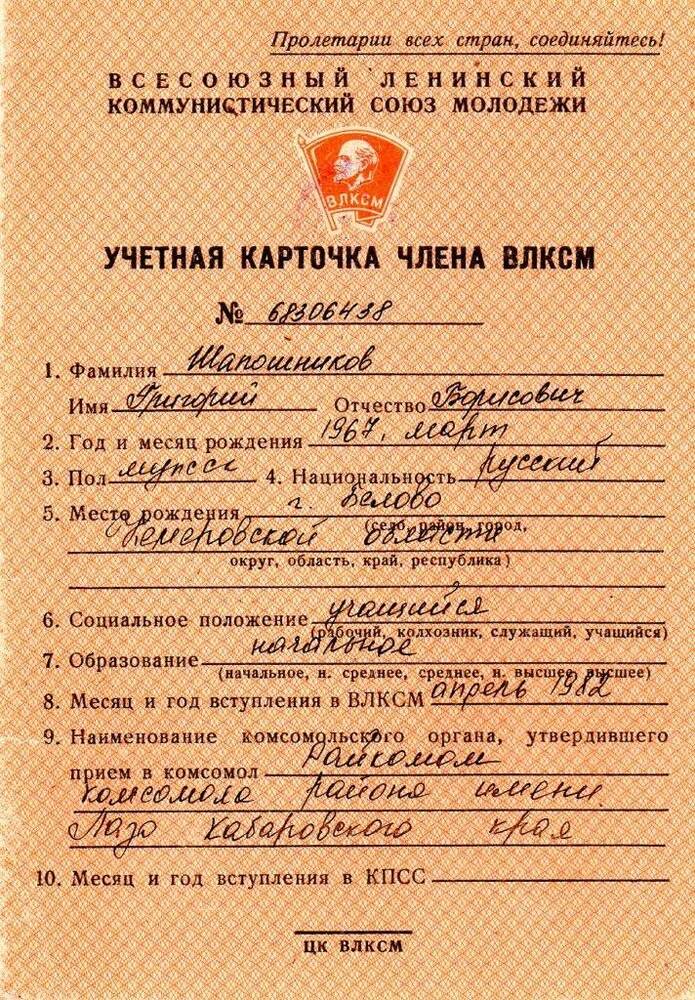 Пролетарии всех стран, соединяйтесь!
ВСЕСОЮЗНЫЙ ЛЕНИНСКИЙ
КОММУНИСТИЧЕСКИЙ СОЮЗ МОЛОДЕЖИ
ВЛКСМ
УЧЕТНАЯ КАРТОЧКА ЧЛЕНА ВЛКСМ
№ 68306438
1. Фамилия Шапошников
Имя Григорий Отчество Борисович
2. Год и месяц рождения 1967, март
3. Пол мужск 4. Национальность русский
5. Место рождения г. Белово
(село, район, город,
Кемеровской области
округ, область, край, республика)
6. Социальное положение учащийся
(рабочий, колхозник, служащий, учащийся)
7. Образование начальное
(начальное, н. среднее, среднее, н. высшее, высшее)
8. Месяц и год вступления в ВЛКСМ апрель 1982
9. Наименование комсомольского органа, утвердившего
прием в комсомол Райкомом
комсомола района имени
Лазо Хабаровского края
10. Месяц и год вступления в КПСС
ЦК ВЛКСМ